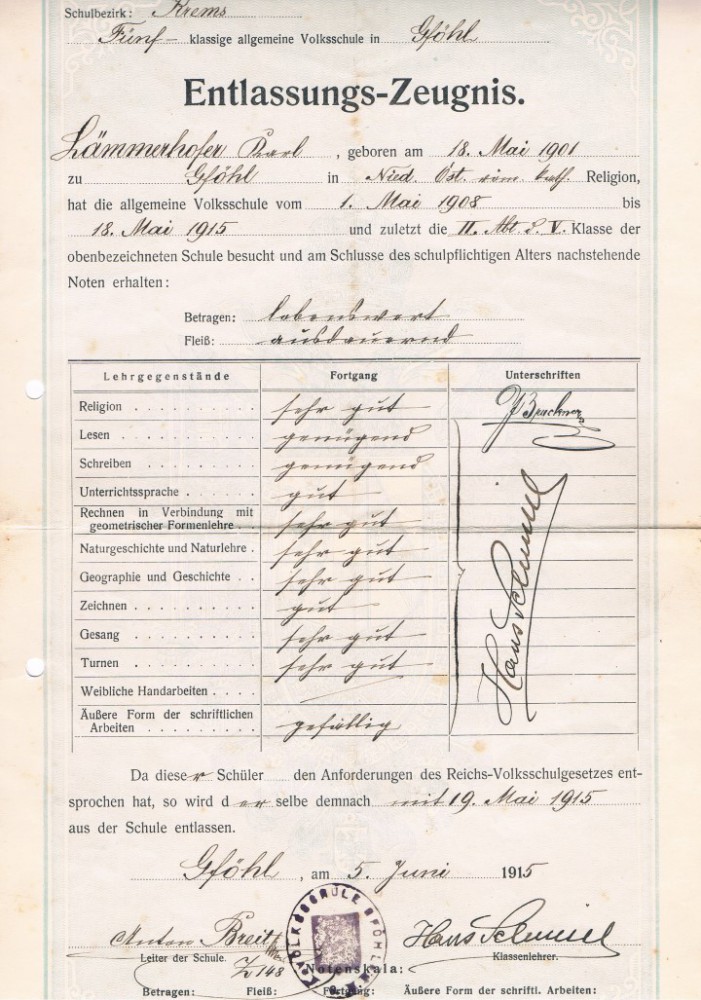 Schulbezirk: Krems
Fünf- klassige allgemeine Volksschule in Gföhl
Entlassungs-Zeugnis.
Lämmerhofer Karl, geboren am 18. Mai 1901
zu Gföhl in Nied. Öst. röm. kath. Religion,
hat die allgemeine Volksschule vom 1. Mai 1908 bis
18. Mai 1915 und zuletzt die II. Abt. d. V. Klasse der
obenbezeichneten Schule besucht und am Schlusse des schulpflichtigen Alters nachstehende
Noten erhalten:
Betragen: lobenswert
Fleiß: ausdauernd
Lehrgegenstände Fortgang Unterschriften
Religion sehr gut
Lesen genügend
Schreiben genügend
Unterrichtssprache gut
Rechnen in Verbindung mit
geometrischer Formenlehre sehr gut
Naturgeschichte und Naturlehre sehr gut
Geographie und Geschichte sehr gut
Zeichnen gut
Gesang sehr gut
Turnen sehr gut
Weibliche Handarbeiten
Äußere Form der schriftlichen
Arbeiten gefällig
Da dieser Schüler den Anforderungen des Reichs-Volksschulgesetzes ent-
sprochen hat, so wird derselbe demnach mit 19. Mai 1915
aus der Schule entlassen.
Gföhl, am 5. Juni 1915
Anton Breit
Leiter der Schule.
Z 148
VOLKSSCHULE GFÖHL
Hans
Klassenlehrer.
Notenskala:
Betragen: Fleiß: Fortgang: Äußere Form der schriftl. Arbeiten: